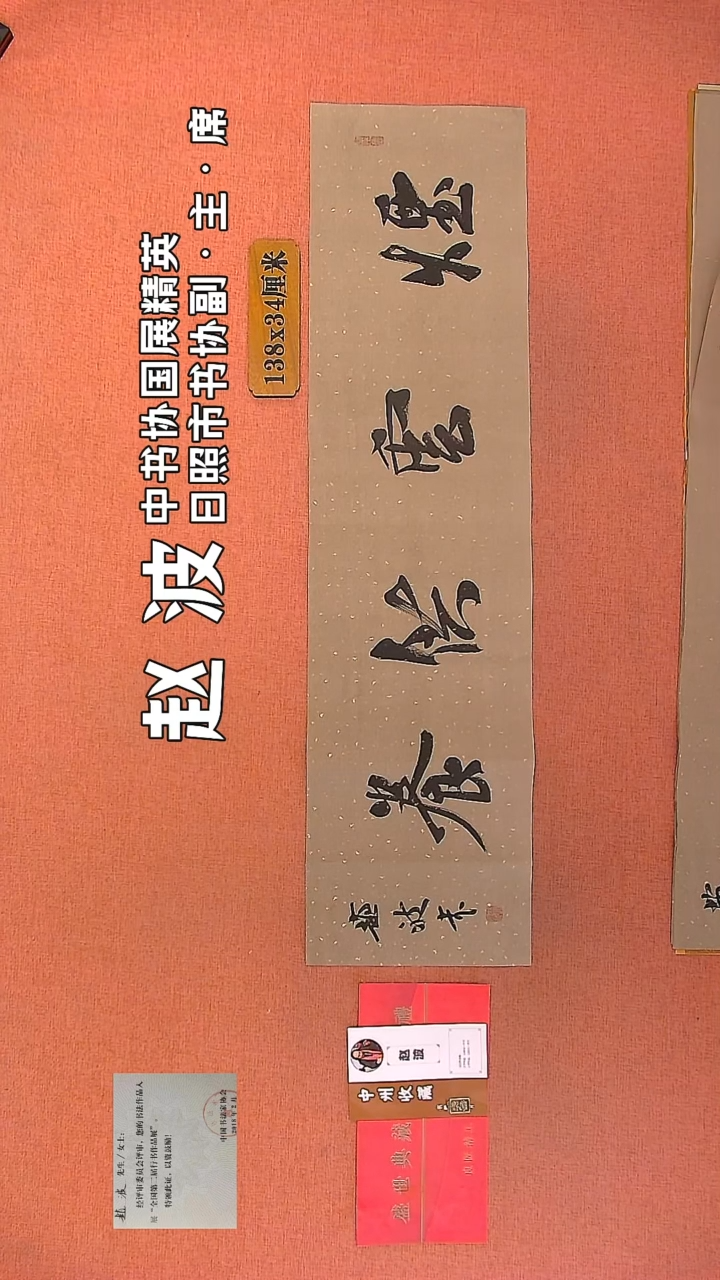 赵 波 中书协国展精英
日照市书协副·主·席
138x34厘米
煙雲供養
趙波書
赵波 先生/女士：
经评审委员会评审，您的书法作品入
展“全国第二届行书作品展”。
特颁此证，以资鼓励！
中国书法家协会
赵波
中州收藏
盛世典藏 禮